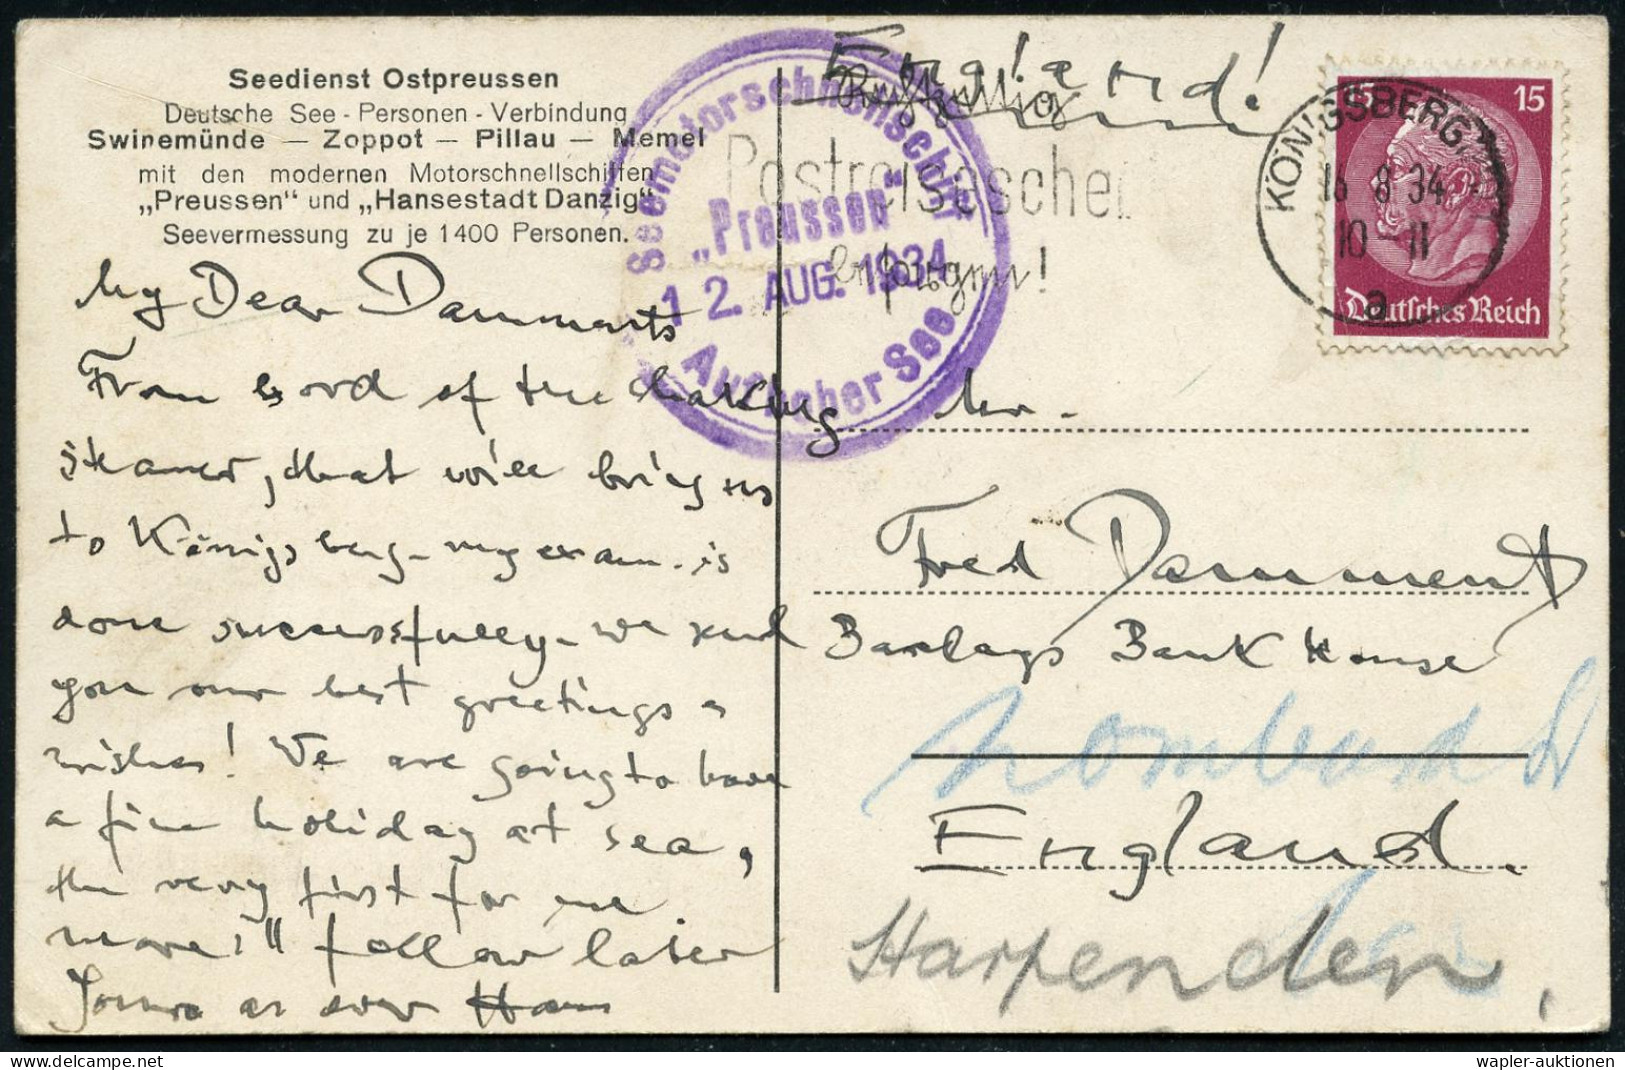 Seedienst Ostpreussen
Deutsche See - Personen - Verbindung
Swinemünde — Zoppot — Pillau — Memel
mit den modernen Motorschnellschiffen
„Preussen" und „Hansestadt Danzig"
Seevermessung zu je 1400 Personen.
My Dear Dammants
From bord of the
steamer, that will bring us
to Königsberg - my exam. is
done successfully - we send
you our best greetings &
wishes! We are going to have
a fine holiday at sea,
the very first for me.
more i'll follow later
Yours as ever Hans
Seemotorschnellschiff
„Preussen"
12. AUG. 1934
Auf hoher See
England!
Postreisescheck
KÖNIGSBERG
16 8 34
10-11
a
15 15
Deutsches Reich
Mr.
Fred Damment
Barclays Bank House
Lombard St
England.
Harpenden,
delcampe.net
wapler-auktionen